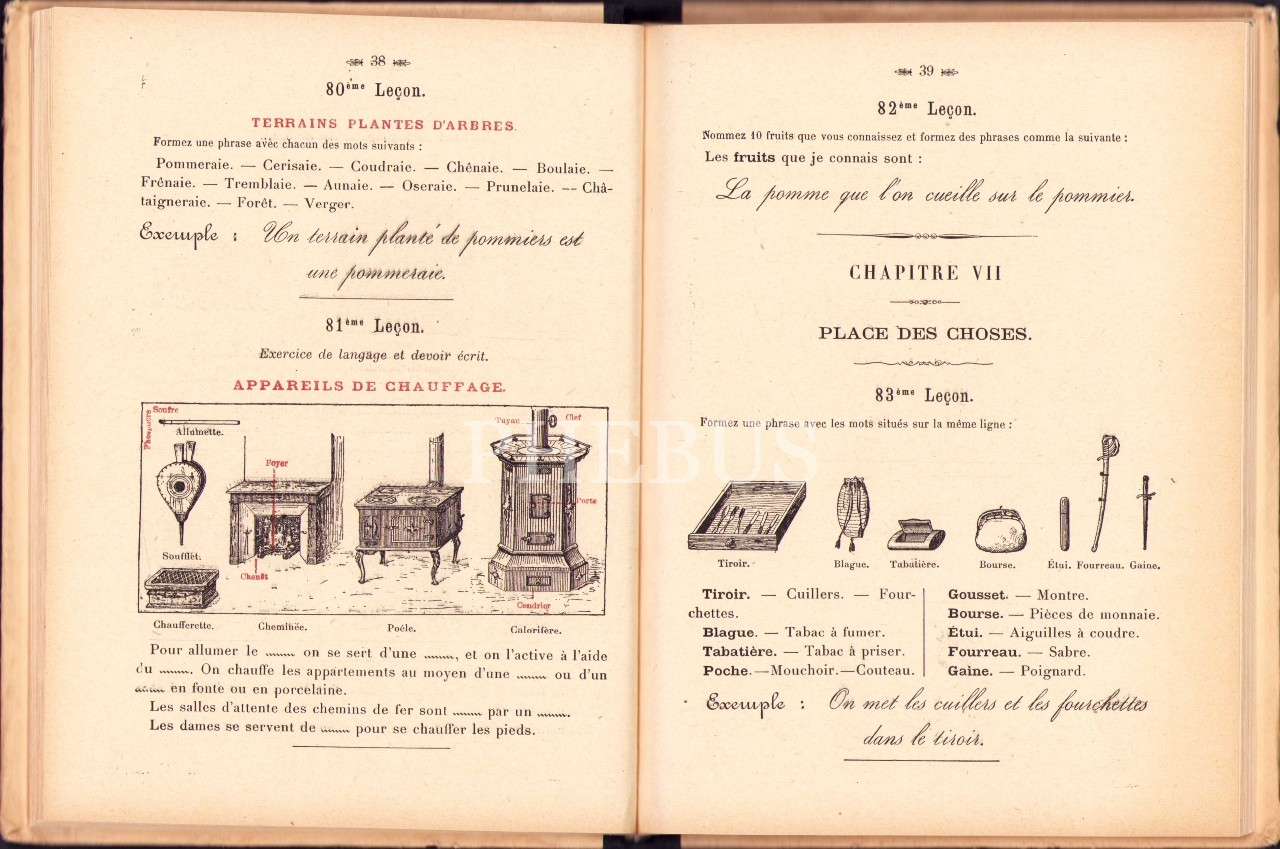 38
80ème Leçon.
TERRAINS PLANTES D'ARBRES.
Formez une phrase avec chacun des mots suivants :
Pommeraie. — Cerisaie. — Coudraie. — Chênaie. — Boulaie. —
Frênaie. — Tremblaie. — Aunaie. — Oseraie. — Prunelaie. — Châ-
taigneraie. — Forêt. — Verger.
Exemple : Un terrain planté de pommiers est
une pommeraie.
81ème Leçon.
Exercice de langage et devoir écrit.
APPAREILS DE CHAUFFAGE.
Soufre
Phosphore
Allumette.
Foyer
Tuyau
Clef
Porte
Soufflet.
Chenêt
Cendrier
Chaufferette. Cheminée. Poêle. Calorifère.
Pour allumer le ........ on se sert d'une ........, et on l'active à l'aide
du ......... On chauffe les appartements au moyen d'une ........ ou d'un
........ en fonte ou en porcelaine.
Les salles d'attente des chemins de fer sont ........ par un .........
Les dames se servent de ........ pour se chauffer les pieds.
39
82ème Leçon.
Nommez 10 fruits que vous connaissez et formez des phrases comme la suivante :
Les fruits que je connais sont :
La pomme que l'on cueille sur le pommier.
CHAPITRE VII
PLACE DES CHOSES.
83ème Leçon.
Formez une phrase avec les mots situés sur la même ligne :
Tiroir. Blague. Tabatière. Bourse. Étui. Fourreau. Gaine.
Tiroir. — Cuillers. — Four-
chettes.
Blague. — Tabac à fumer.
Tabatière. — Tabac à priser.
Poche. — Mouchoir. — Couteau.
Gousset. — Montre.
Bourse. — Pièces de monnaie.
Étui. — Aiguilles à coudre.
Fourreau. — Sabre.
Gaine. — Poignard.
Exemple : On met les cuillers et les fourchettes
dans le tiroir.
PHEBUS